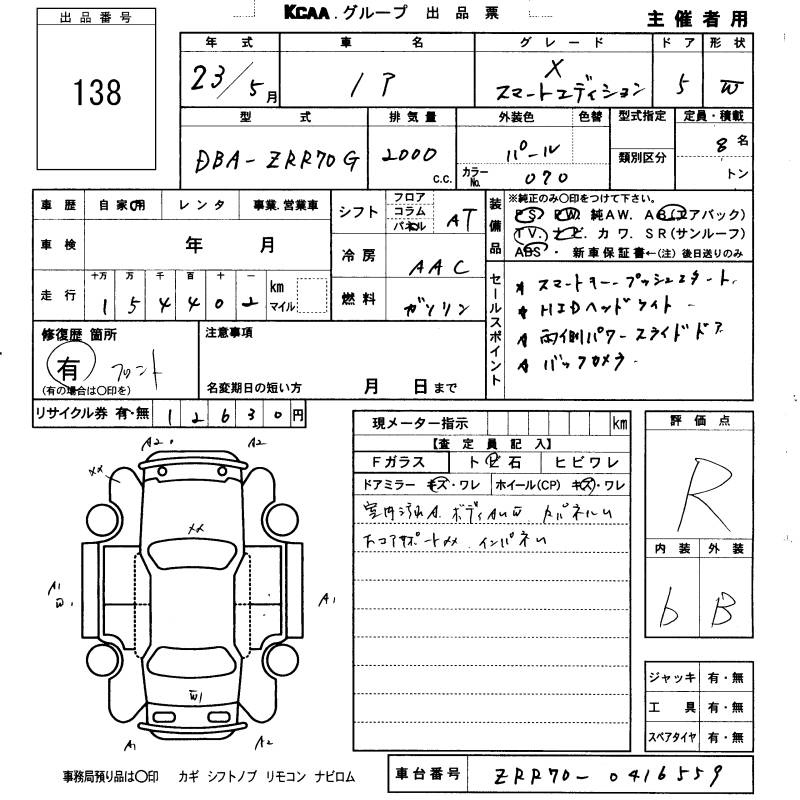 KCAA.グループ 出品票
主催者用
出品番号
138
年式 車名 グレード ドア 形状
23/5月 ノア X 5 W
スマートエディション
型式 排気量 外装色 色替 型式指定 定員・積載
DBA-ZRR70G 2000 c.c. パール 8名
カラーNo. 070 類別区分 トン
車歴 自家用 レンタ 事業.営業車
車検 年 月
走行 十万 万 千 百 十 一 km マイル
1 5 4 4 0 2
シフト フロア コラム パネル AT
冷房 AAC
燃料 ガソリン
装備品
※純正のみ○印をつけて下さい。
PS. PW. 純AW. AB(エアバック)
TV. ナビ. カワ. SR(サンルーフ)
ABS・ 新車保証書←(注)後日送りのみ
セールスポイント
スマートキー プッシュスタート
HIDヘッドライト
両側パワースライドドア
バックカメラ
修復歴 箇所
有 フロント
(有の場合は○印を)
注意事項
名変期日の短い方 月 日まで
リサイクル券 有・無 12630円
現メーター指示 km
【査定員記入】
Fガラス トビ石 ヒビワレ
ドアミラー キズ・ワレ ホイール(CP) キズ・ワレ
室内汚れA. ボディAUW
コアサポートXX. インパネU
評価点
R
内装 外装
b B
ジャッキ 有・無
工具 有・無
スペアタイヤ 有・無
A2 A2
XX
XX
A1 W1 A1
W1
A1 A2
事務局預り品は○印 カギ シフトノブ リモコン ナビロム
車台番号 ZRR70-0416559